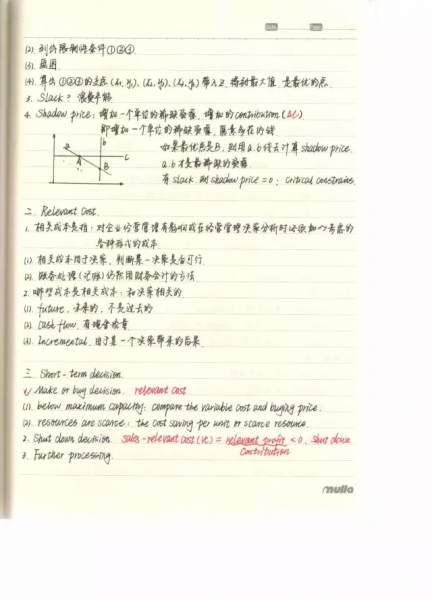 Date
Page
(2). 列出限制性条件①②③
(3). 画图
(4). 算出①②③的交点(x1, y1)、(x2, y2)、(x3, y3) 带入z. 得利最大值. 是最优的点.
3. Slack?
4. Shadow price: 增加一个单位的稀缺资源, 增加的contribution (△C)
即增加一个单位的稀缺资源, 愿意多花的钱
如果最优点是B, 则用a.b线去计算shadow price.
a.b才是最稀缺的资源
有slack 则shadow price = 0; critical constrains.
a
b
A
B
c
二. Relevant Cost.
1. 相关成本是指: 对企业经营管理有影响或在经营管理决策分析时必须加以考虑的
各种形式的成本.
(1). 相关成本用于决策, 判断某一决策是否可行.
(2). 账务处理(记账)仍然用财务会计的方法
2. 哪些成本是相关成本: 和决策相关的.
(1). future, 未来的, 不是过去的
(2). Cash flow, 有现金
(3). Incremental, 由于某一个决策带来的后果.
三. Short-term decision.
1. Make or buy decision. relevant cost
(1). below maximum capacity: compare the variable cost and buying price.
(2). resources are scarce: the cost saving per unit of scarce resource.
2. Shut down decision. sales - relevant cost (vc) = relevant profit < 0, shut down
contribution
3. Further processing.
mulla